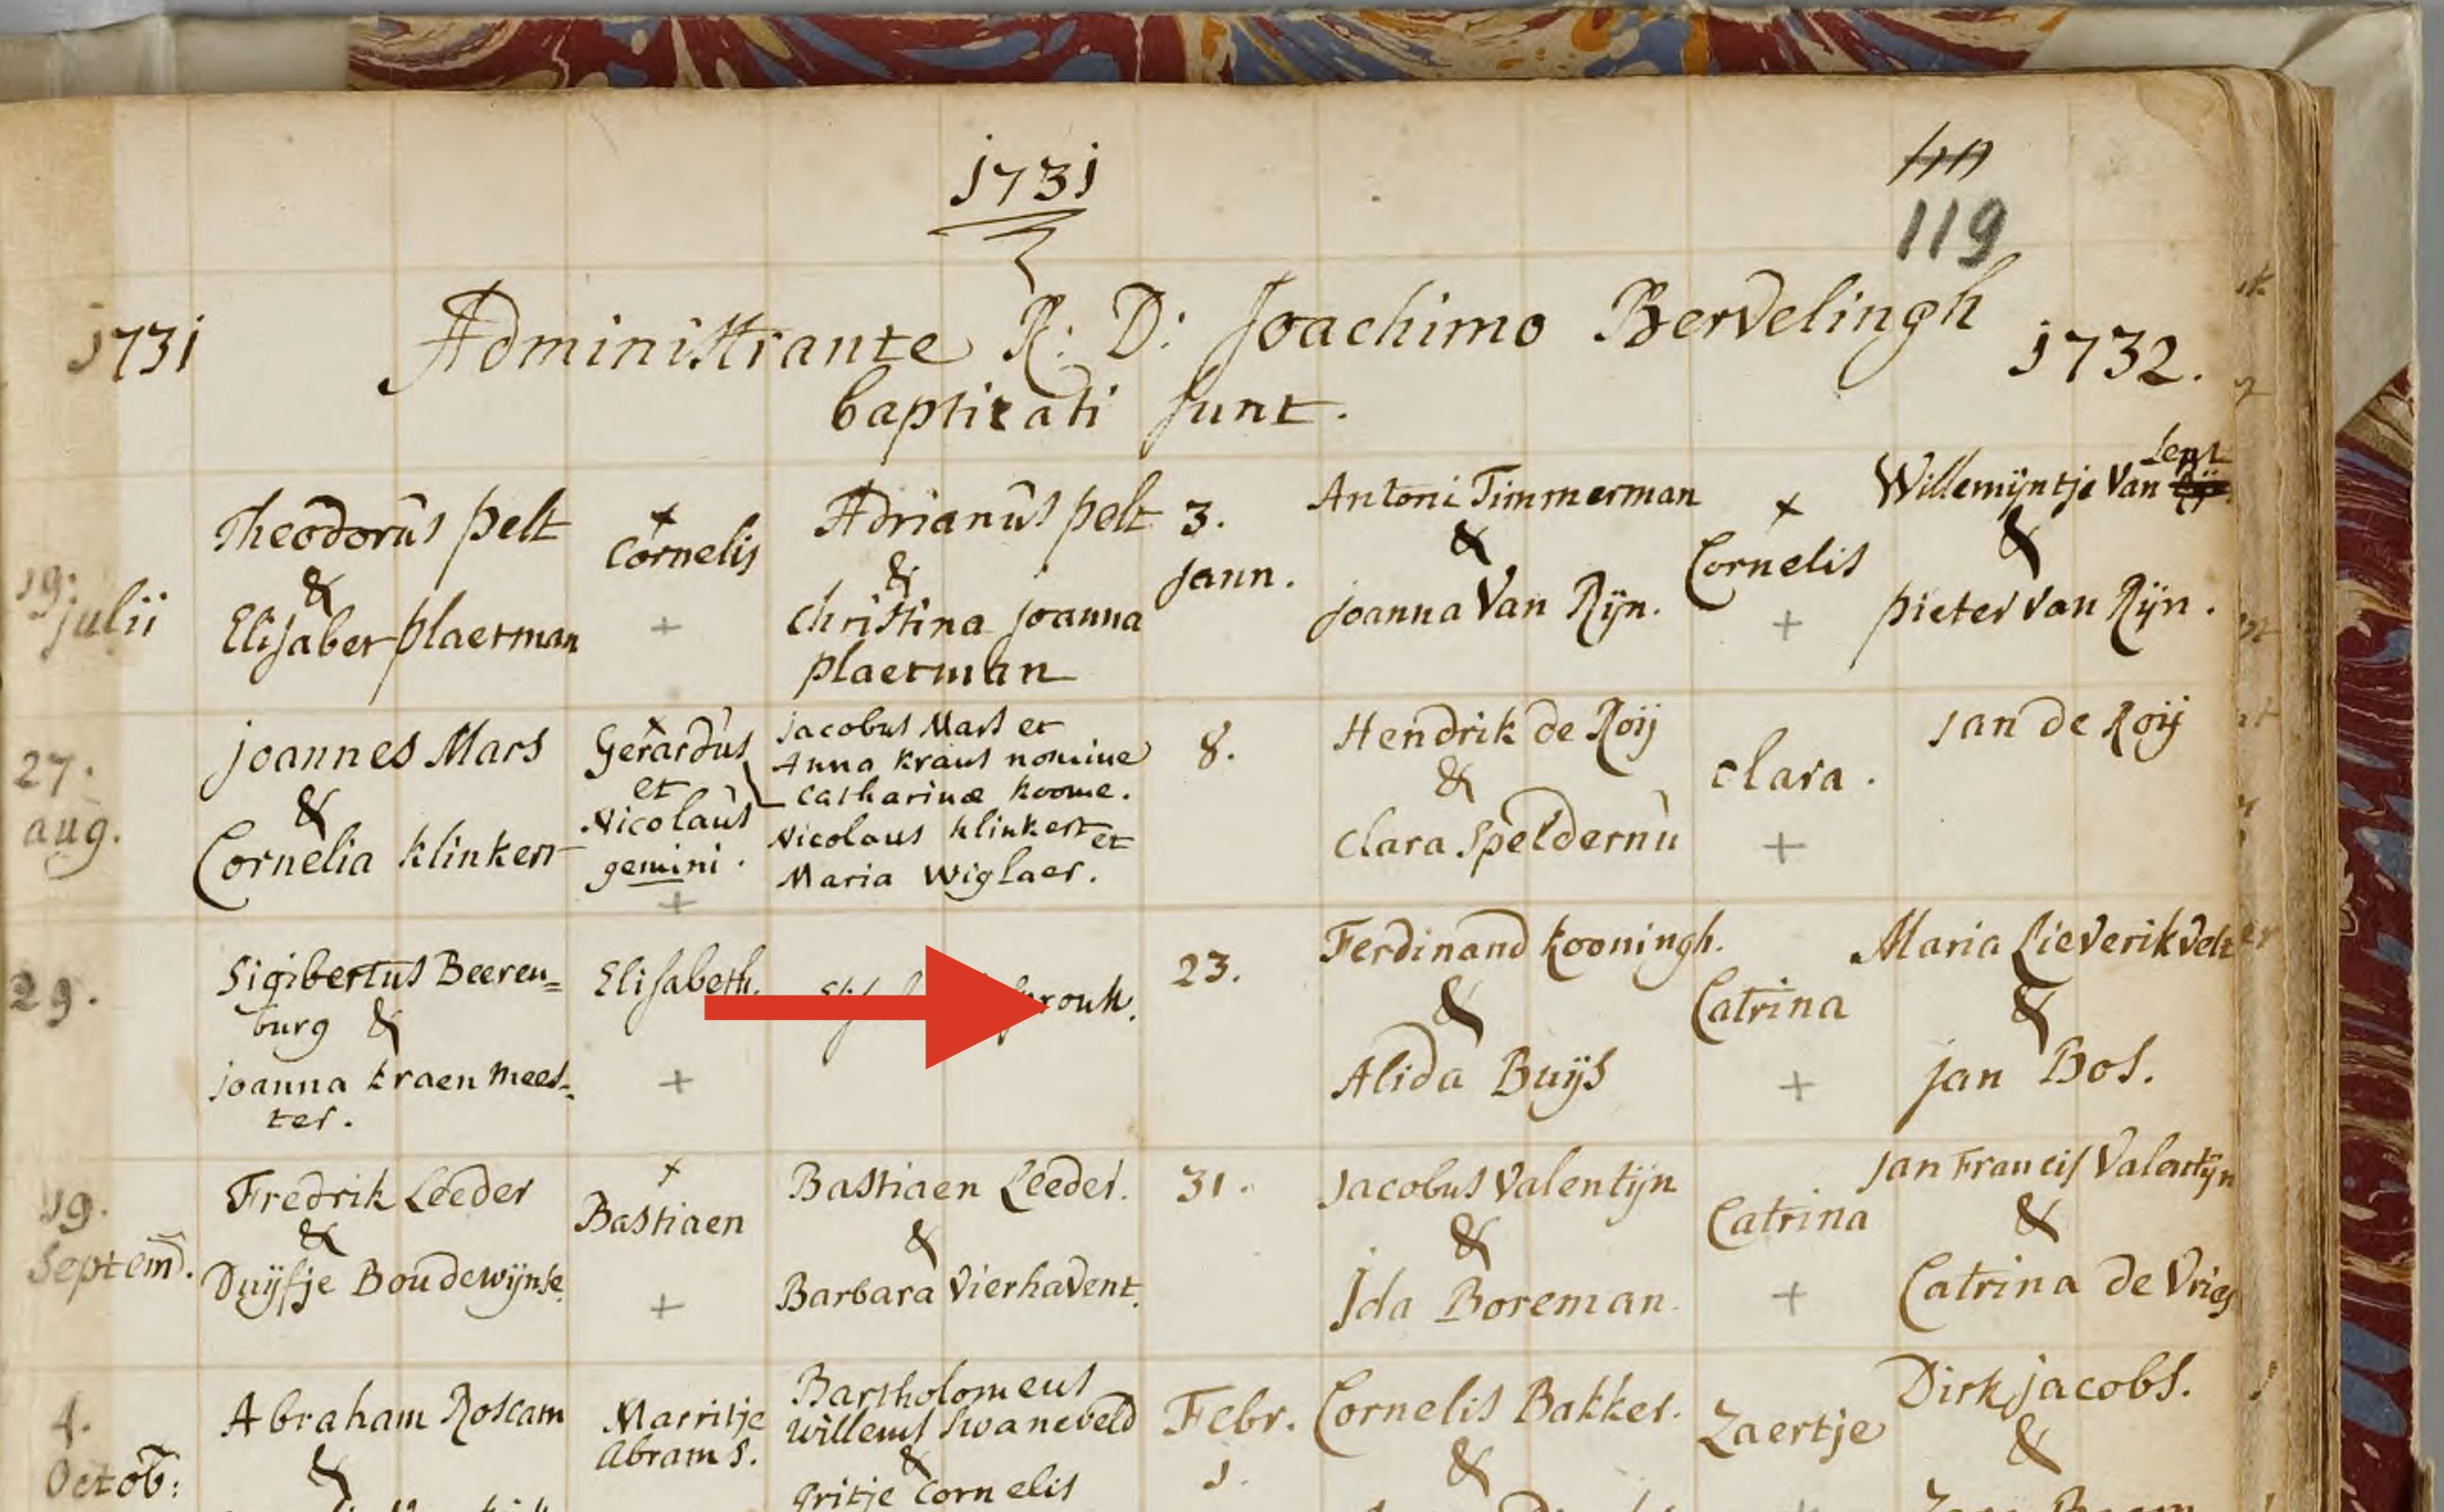 1731
119
1731
Administrante R: D: Joachimo Bervelingh
1732.
baptizati sunt.
19:
julii
Theodorus pelt
&
Elisabet plaetman
Cornelis
Adrianus pelt
&
Christina joanna
plaetman
27.
aug.
joannes Mars
&
Cornelia klinkert
Gerardus
et
Nicolaus
gemini.
jacobus Mars et
Anna kraus nomine
Catharinæ koome.
Nicolaus klinkert et
Maria Wiglaer.
29.
Sigibertus Beeren=
burg &
joanna kraen mees=
ter.
Elisabeth.
19.
Septem.
Fredrik Leeder
&
Duijfje Boudewijnse
Bastiaen
Bastiaen Leeder.
&
Barbara Vierhavent.
4.
Octob:
Abraham Roscam
&
Marritje
Abrams.
Bartholomeus
Willems Swaneveld
&
Gritje Cornelis
3.
jann.
Antoni Timmerman
&
joanna Van Rijn.
Cornelis
Willemijntje Van Lent
&
pieter van Rijn.
8.
Hendrik de Roij
&
Clara Speldernù
Clara.
Jan de Roij
23.
Ferdinand kooningh.
&
Alida Buijs
Catrina
Maria Lieverikvelt
&
jan Bos.
31.
Jacobus Valentijn
&
Ida Boreman
Catrina
Jan Francis Valentijn
&
Catrina de Vries
Febr.
1.
Cornelis Bakker.
&
Zaertje
Dirk jacobs.
&